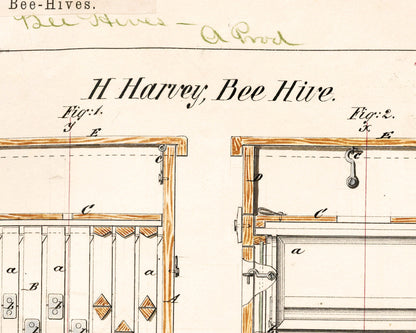 Bee-Hives.
Bee Hives — A Prod
H Harvey, Bee Hive.
Fig: 1.
Fig: 2.
y
E
x
E
c
e
D
C
C
a
a
a
a
B
b
b
A
b